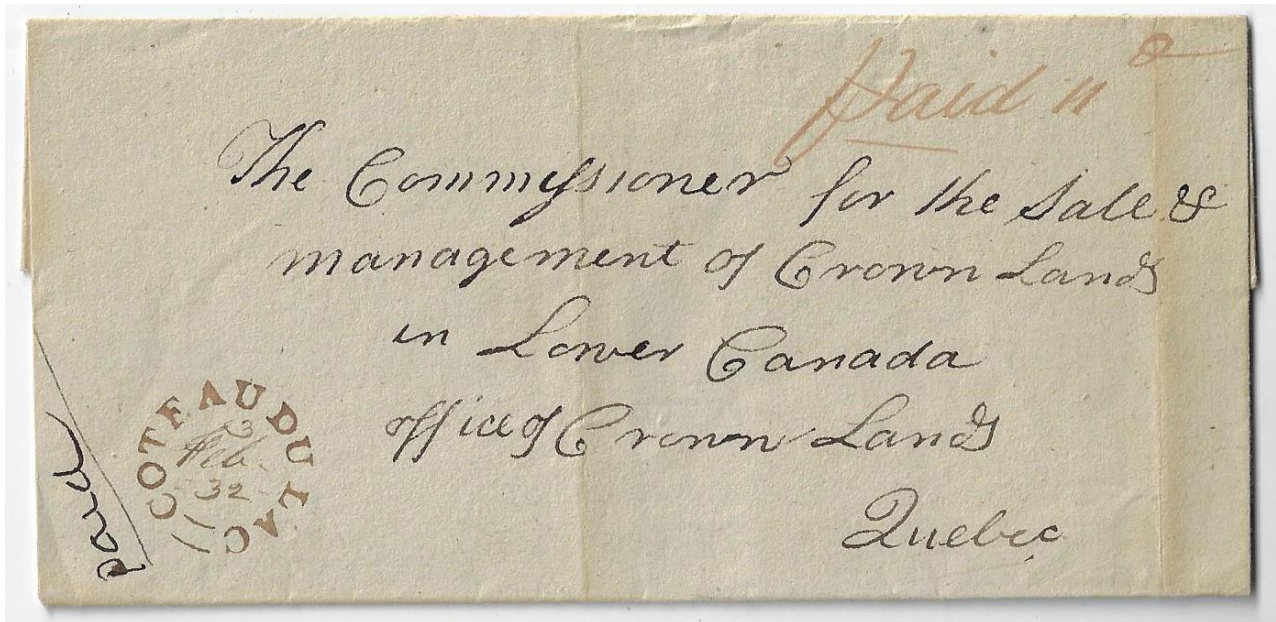 Paid 11d
The Commissioner for the Sale &
management of Crown Lands
in Lower Canada
office of Crown Lands
Quebec
COTEAU DU LAC
Feb.
32
Paid